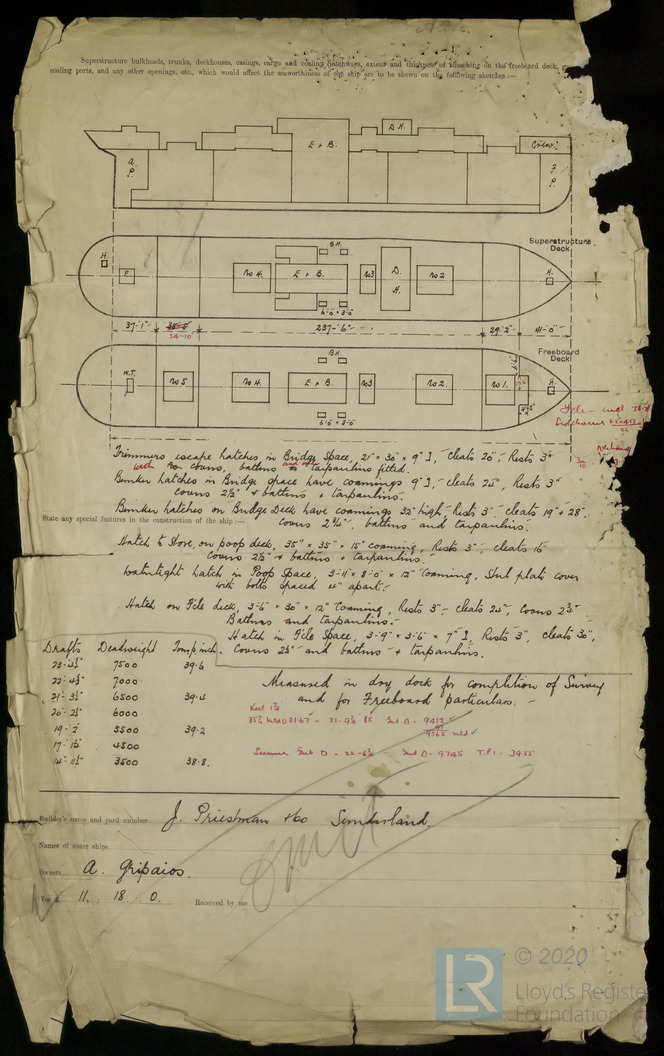 Superstructure bulkheads, trunks, deckhouses, casings, cargo and coaling hatchways, extent and thickness of sheathing on the freeboard deck,
coaling ports, and any other openings, etc., which would affect the seaworthiness of the ship are to be shown on the following sketches:—
D.H.
E + B.
Crew.
A.P.
F.P.
Superstructure Deck
B.H.
H.
P.
No 4.
E + B.
No 3
D.H.
No 2
H.
6'-0" x 3'-0"
37'-1"
34-10
237'-6"
29'-2"
41'-0"
Freeboard Deck
B.H.
W.T.
No 5
No 4.
E + B.
No 3
No 2.
No 1.
H.
6'-0" x 3'-0"
Trimmers escape hatches in Bridge Space, 21" x 30" x 9" I, cleats 20", Rests 3"
with no covers, battens or tarpaulins fitted.
Bunker hatches in Bridge space have coamings 9" I, cleats 25", Rests 3"
covers 2½" + battens + tarpaulins.
Bunker hatches on Bridge Deck have coamings 32" high, Rests 3", cleats 19" + 28"
covers 2¾", battens and tarpaulins.
State any special features in the construction of the ship:—
Hatch to Store, on poop deck, 35" x 35" x 15" coaming, Rests 3", cleats 15"
Covers 2½" + battens + tarpaulins.
Watertight hatch in Poop Space, 3'-11" x 8'-0" x 12" Coaming, Steel plate cover
with bolts spaced 4" apart.
Hatch on F'cle deck, 3'-6" x 30" x 12" Coaming, Rests 3", Cleats 24", Covers 2½"
Battens and tarpaulins.
Hatch in F'cle Space, 3'-9" x 3'-6" x 7" I, Rests 3", cleats 30",
Covers 2½" and battens + tarpaulins.
Drafts Deadweight Tons p inch.
23-4½" 7500 39.6
22-4½" 7000
21-3½" 6500 39.4
20-2½" 6000
19-2" 5500 39.2
17-1½" 4500
14-11½" 3500 38.8.
Measured in dry dock for completion of Survey
and for Freeboard particulars.
Keel 1¾
9365 mld
Summer T.P.I. - 39.55
Builder's name and yard number J. Priestman & Co Sunderland.
Names of sister ships
Owners A. Gripaios.
Fee £ 11. 18 0. Received by me
LR
© 2020
Lloyd's Register
Foundation